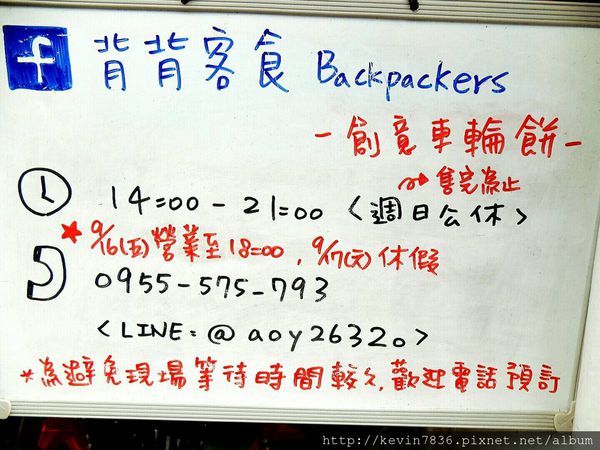 f 背背客食 Backpackers
-創意車輪餅-
售完為止
14:00-21:00 <週日公休>
★9/16(五)營業至18:00, 9/17(六)休假
0955-575-793
<LINE:@aoy2632o>
*為避免現場等待時間較久,歡迎電話預訂
http://kevin7836.pixnet.net/album